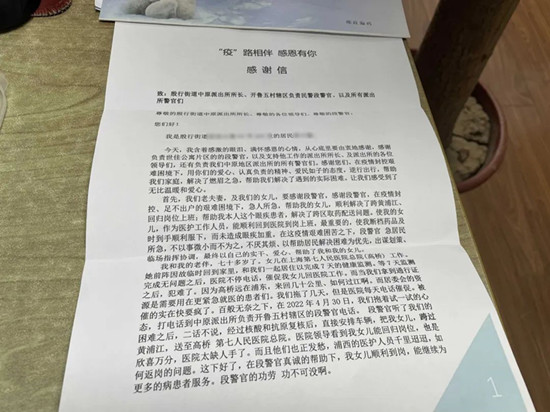 "疫"路相伴 感恩有你
感 谢 信
致：殷行街道中原派出所所长、开鲁五村辖区负责民警段警官，以及所有派出
所警官们
尊敬的殷行街道中原派出所所长、尊敬的各位领导们，尊敬的段警官，
您们好！
我是殷行街道 的居民
今天，我含着感激的眼泪，满怀感恩的心情，从心底里要由衷地感谢，感谢
负责世佳公寓片区的的段警官，以及支持他工作的派出所所长、及派出所的各位
领导们，还有负责我们中原地区派出所的所有警官们，感谢您们，在疫情封控艰
难困境下，用你们的爱心、认真负责的精神、爱民如子的态度，逆行出行，帮助
我们家庭，解决了燃眉之急，帮助我们解决了遇到的实际困难，让我们感受到了
无比温暖和爱心。
首先，我们老夫妻，及我们的女儿，要感谢段警官，感谢段警官，在疫情封
控，足不出户的艰难困境下，急人所急，帮助我的女儿，顺利解决了跨黄浦江、
回归岗位上班；帮助我本人这个眼疾患者，解决了跨区取药配送问题。使我的女
儿，作为医护工作人员，能顺利回到医院到岗上班，最重要的，使我断档药品及
时到手顺利服下，而未造成眼疾加重。在这疫情艰难困苦之下，段警官 急居民
所急，不以事微小而不为之，不厌其烦，以帮助居民解决困难为优先，出谋划策、
临场指挥协调，最终以自己的实干、爱心、帮助了我和女儿。
我和我的老伴，七十多岁了。女儿在上海第七人民医院总院(高桥) 工作。
她前阵因故临时回到家里，和我们一起居住以完成 7 天的健康监测，等 7 天监测
完成无问题之后，医院不停电话，催促我女儿回医院工作，而当我们拿到通行证
之后，犯难了。因为高桥远在浦东，来回几十公里，如何过江啊，而居委会的资
源是需要用在更紧急就医的患者们。我们拖了几天，但是医院每天电话催促，被
催的实在快要疯了，百般无奈之下，在 2022 年 4 月 30 日，我们抱着试一试的心
态，打电话到中原派出所负责开鲁五村辖区的段警官电话。 段警官听了我们的
困难之后，二话不说，经过核酸和抗原复核后，直接安排车辆，把我女儿，跨过
黄浦江，送至高桥 第七人民医院总院。医院领导看到我女儿能回归岗位，也是
欣喜万分，医院太缺人手了。而且他们也正发愁，浦西的医护人员千里迢迢，如
何返岗的问题。这下好了，在段警官真诚的帮助下，我女儿顺利到岗，能继续为
更多的病患者服务。段警官的功劳 功不可没啊。
1